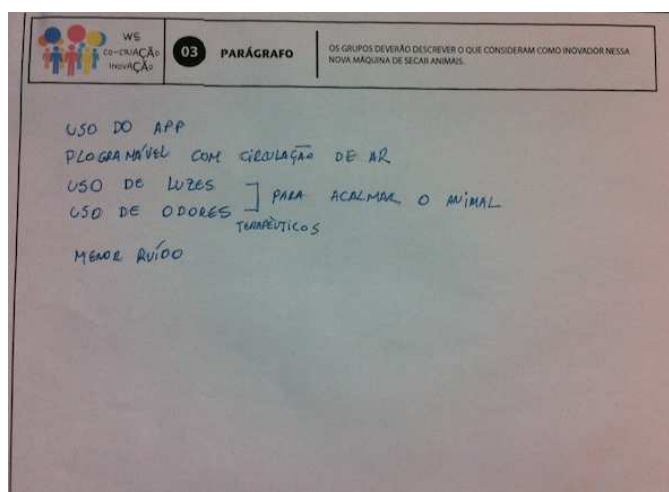 WS
CO-CRIAÇÃO
INOVAÇÃO
03
PARÁGRAFO
OS GRUPOS DEVERÃO DESCREVER O QUE CONSIDERAM COMO INOVADOR NESSA
NOVA MÁQUINA DE SECAR ANIMAIS.
USO DO APP
PLOGRAMÁVEL COM CIRCULAÇÃO DE AR
USO DE LUZES
USO DE ODORES
TERAPÊUTICOS
PARA ACALMAR O ANIMAL
MENOR RUÍDO